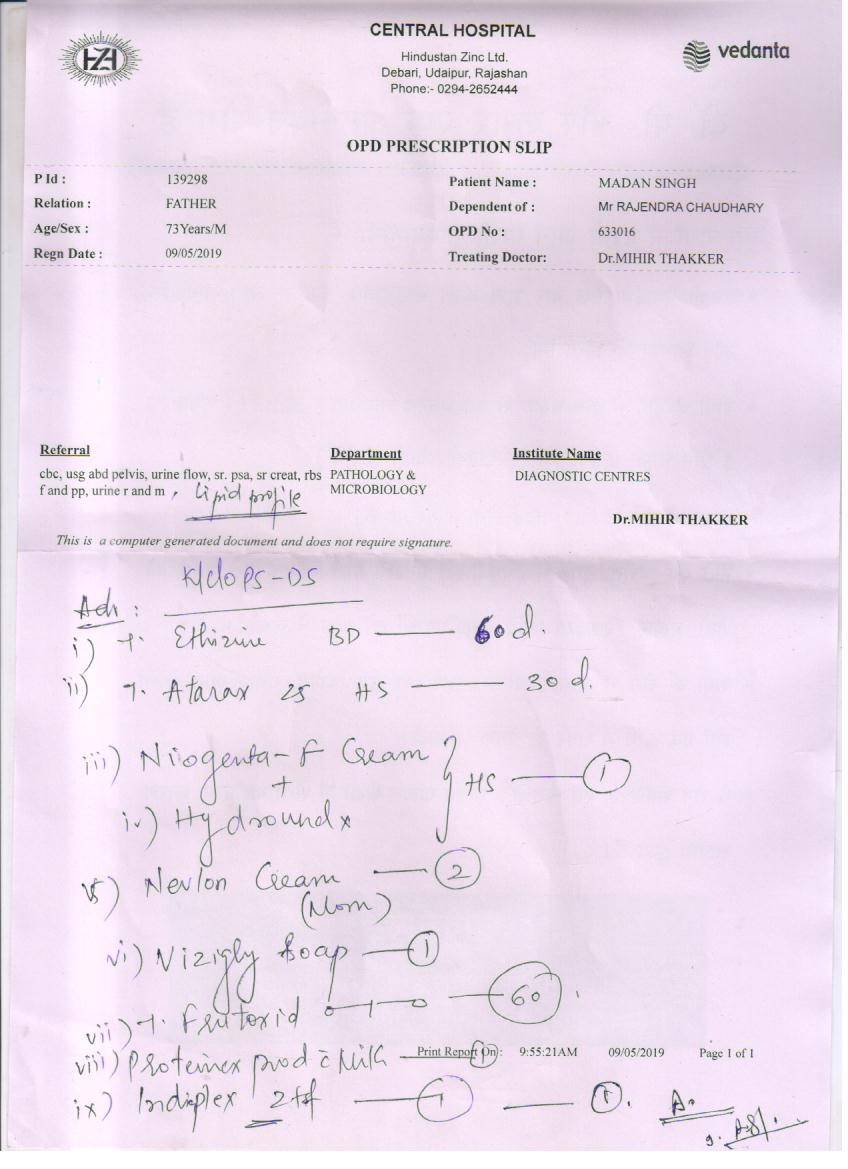 CENTRAL HOSPITAL
HZL
Hindustan Zinc Ltd.
vedanta
Debari, Udaipur, Rajashan
Phone:- 0294-2652444
OPD PRESCRIPTION SLIP
P Id : 139298 Patient Name : MADAN SINGH
Relation : FATHER Dependent of : Mr RAJENDRA CHAUDHARY
Age/Sex : 73Years/M OPD No : 633016
Regn Date : 09/05/2019 Treating Doctor: Dr.MIHIR THAKKER
Referral Department Institute Name
cbc, usg abd pelvis, urine flow, sr. psa, sr creat, rbs PATHOLOGY & DIAGNOSTIC CENTRES
f and pp, urine r and m , Lipid profile MICROBIOLOGY
Dr.MIHIR THAKKER
This is a computer generated document and does not require signature.
K/c/o PS-DS
Adv :
i) T. Ethizine BD — 60 d.
ii) T. Atarax 25 HS — 30 d.
iii) Niogenta-F Cream
+ HS — 1
iv)
v) Nevlon Cream — 2
(Morn)
vi) Vizigly Soap — 1
vii) T. 0-1-0 — 60
viii) Proteinex c Milk — 1
Print Report On: 9:55:21AM 09/05/2019 Page 1 of 1
ix) Indiplex — 1 — 1.